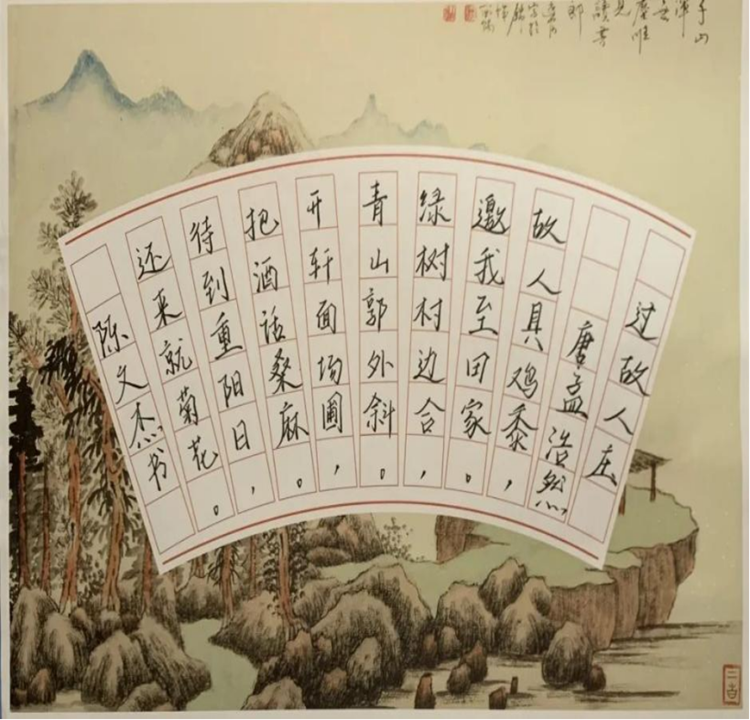 过故人庄
唐孟浩然
故人具鸡黍，
邀我至田家。
绿树村边合，
青山郭外斜。
开轩面场圃，
把酒话桑麻。
待到重阳日，
还来就菊花。
陈文杰书